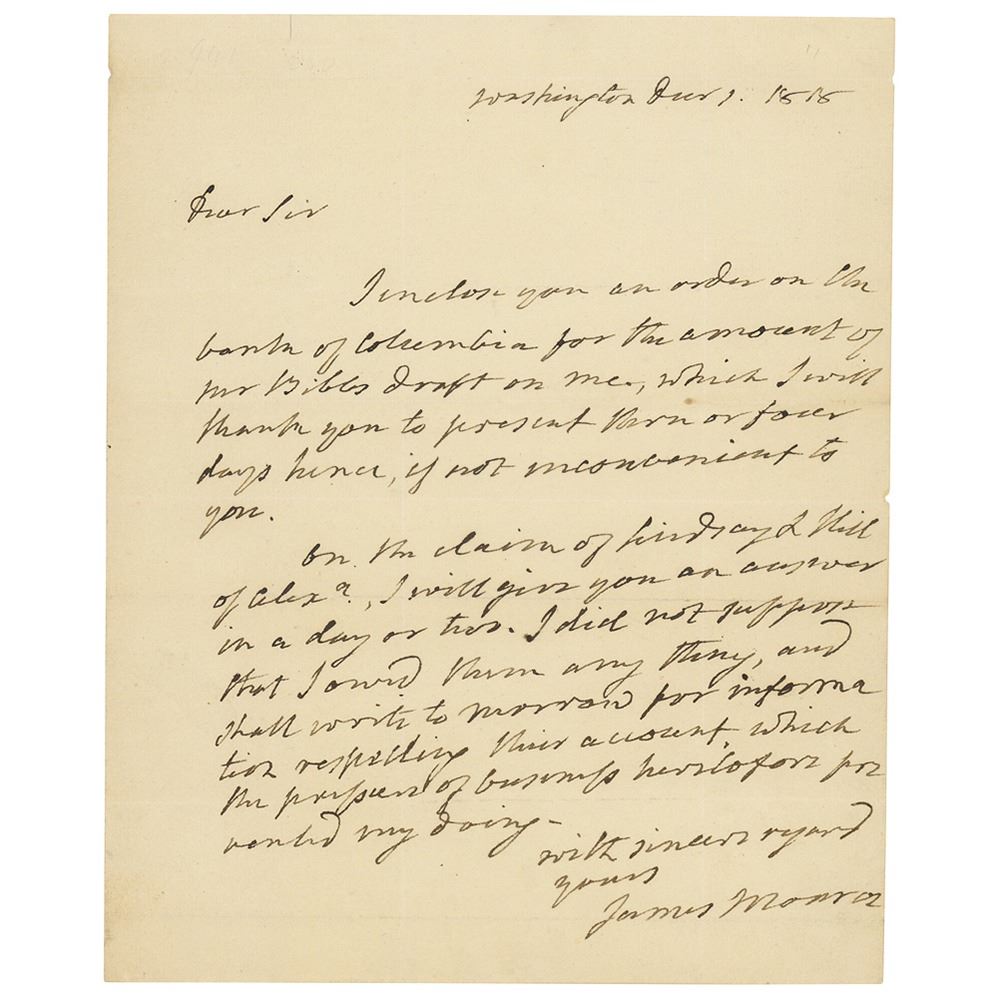 Washington Decr 1. 1818
Dear Sir
I enclose you an order on the
bank of Columbia for the amount of
mr Bibbs draft on me, which I will
thank you to present three or four
days hence, if not inconvenient to
you.
On the claim of Lindsay & Hill
of Alexa., I will give you an answer
in a day or two. I did not suppose
that I owed them any thing, and
shall write to morrow for informa
tion respecting their account which
the pressure of business heretofore pre
vented my doing -
with sincere regard
yours
James Monroe